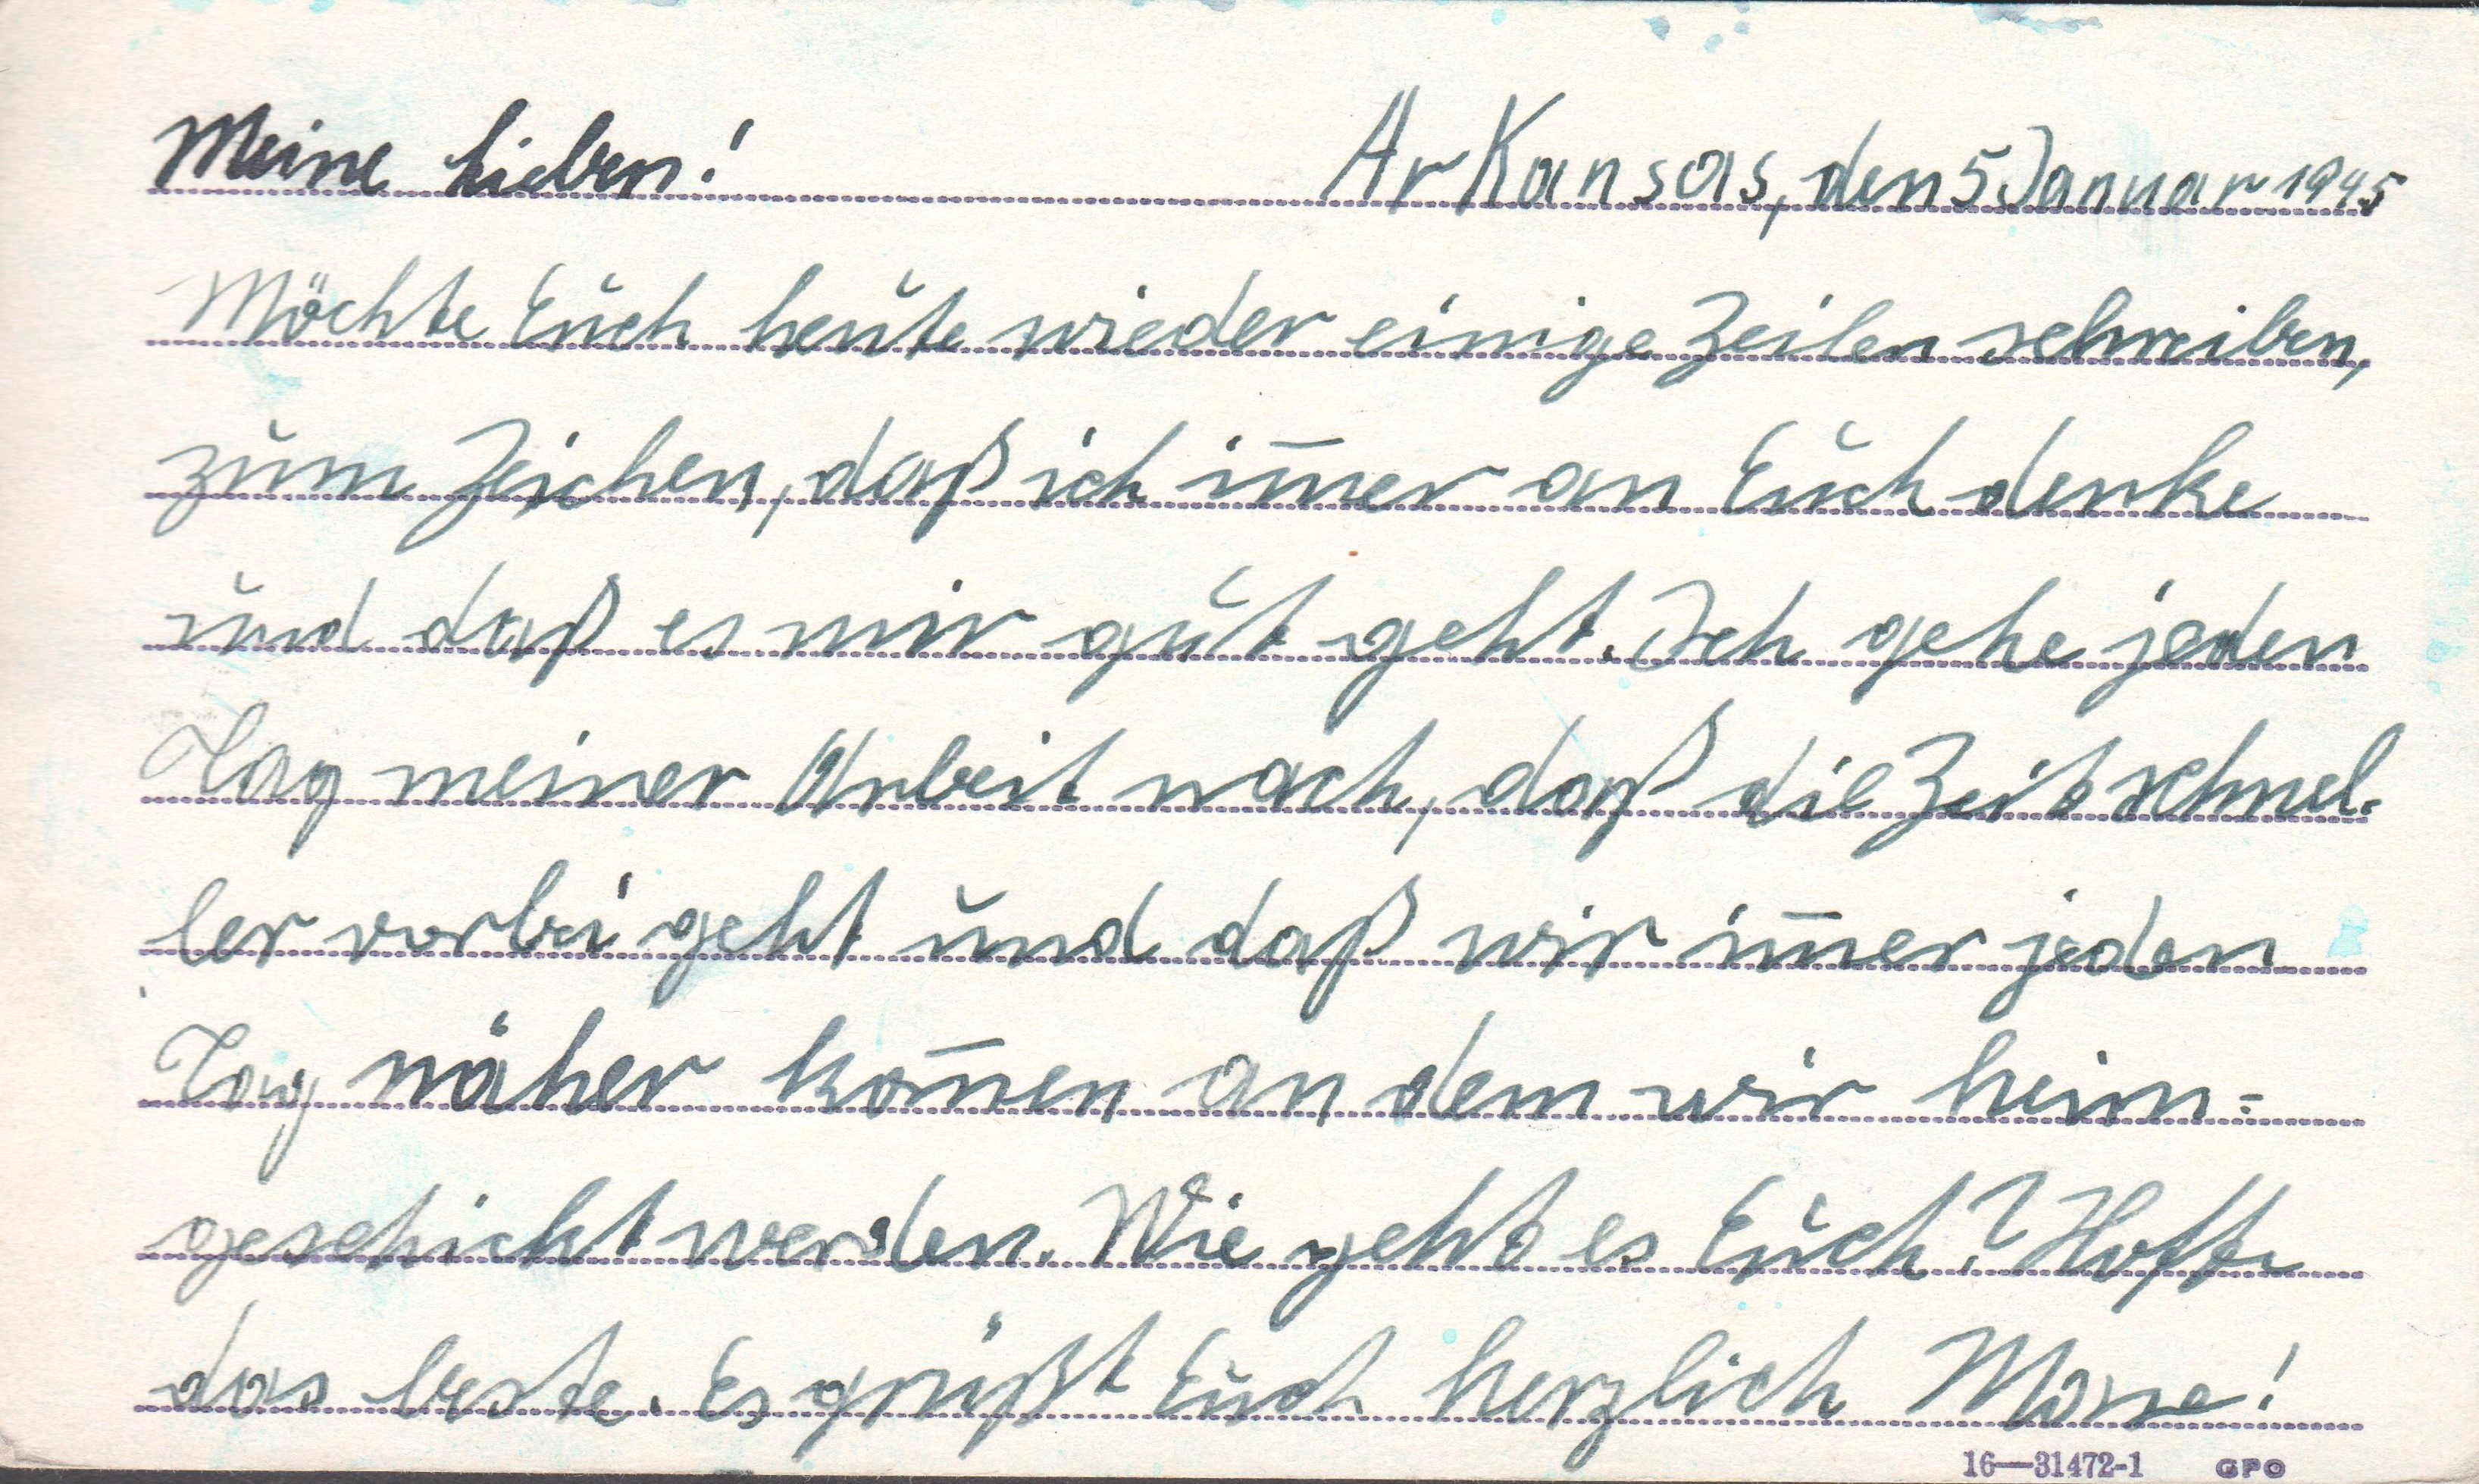 Meine Lieben! Arkansas, den 5 Januar 1945
Möchte Euch heute wieder einige Zeilen schreiben,
zum Zeichen, daß ich im̅er an Euch denke
und daß es mir gut geht. Ich gehe jeden
Tag meiner Arbeit nach, daß die Zeit schnel-
ler vorbei geht und daß wir im̅er jeden
Tag näher kom̅en an dem wir heim=
geschickt werden. Wie geht es Euch? Hoffe
das beste. Es grüßt Euch herzlich
16—31472-1 GPO